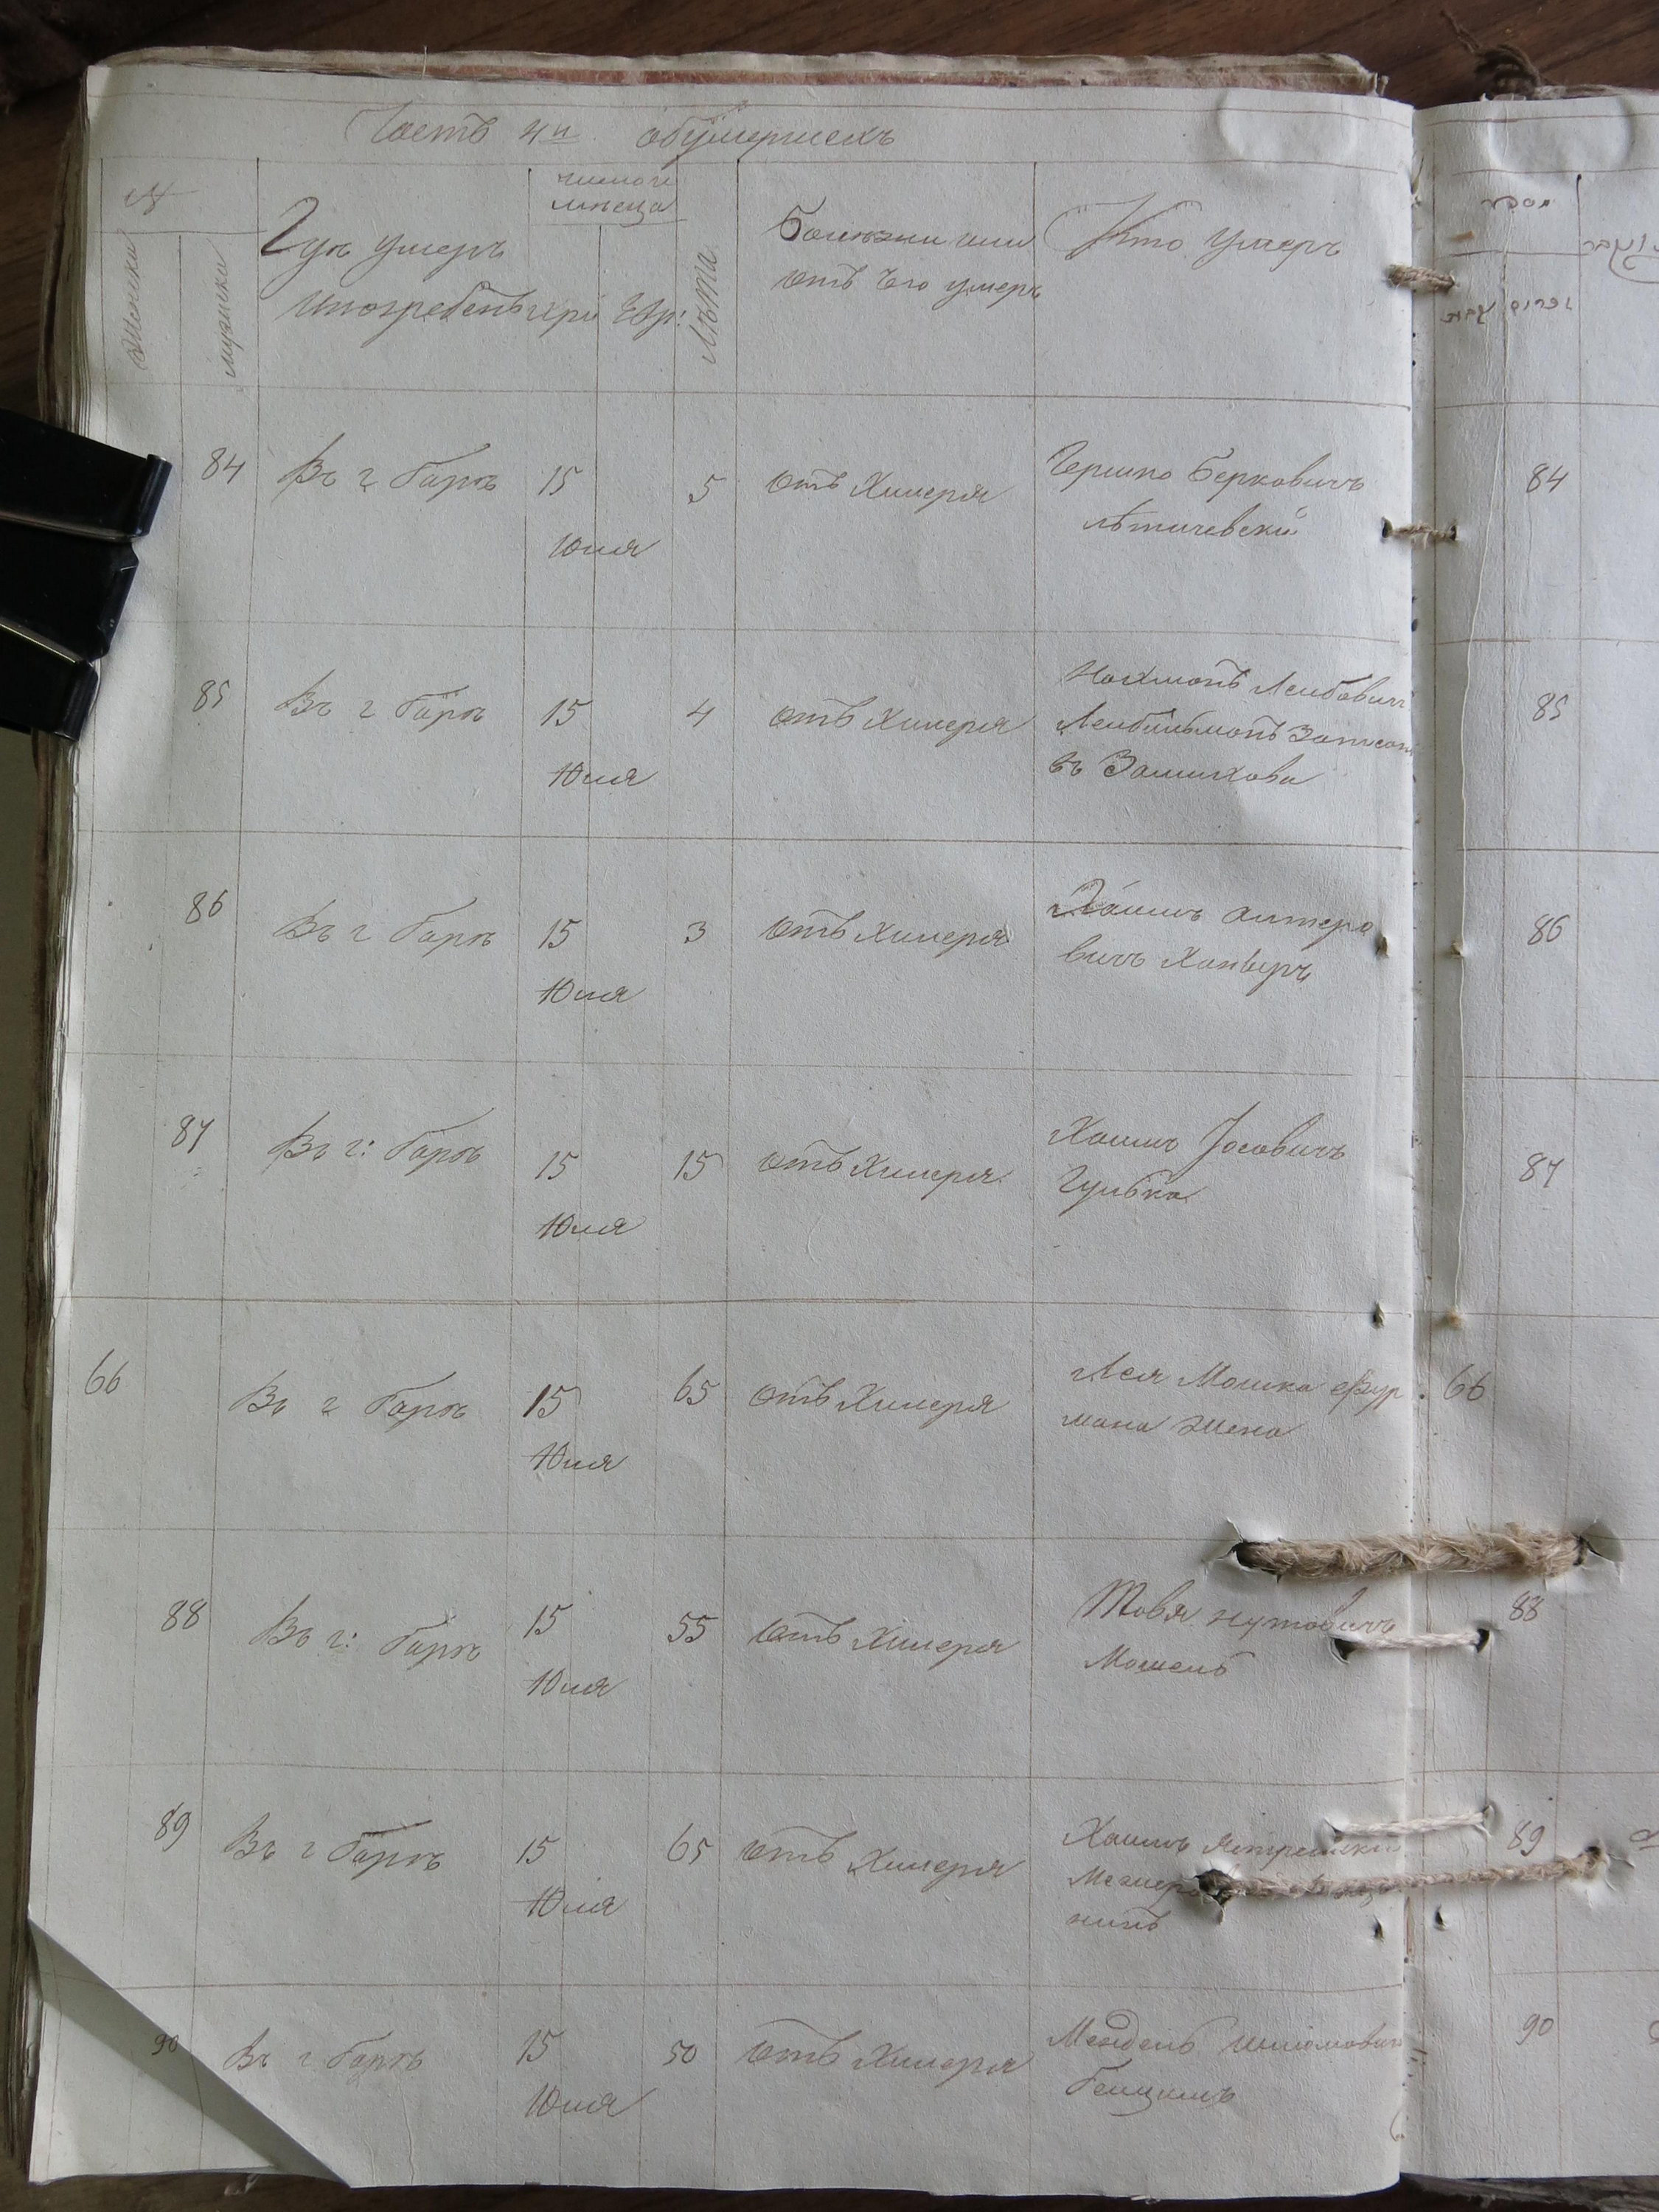 Часть 4я обумершихъ
№
Женски
мужески
Гдѣ умеръ
ипогребенъ
число и
мѣсеца
хрi
Евр:
Лѣта
Болѣзни или
отъ чего умеръ
Кто умеръ
84 Въ г Барѣ 15 Юля 5 отъ Химеря Гершко Берковичъ
лѣтичевскiй
84
85 Въ г Барѣ 15 Юля 4 отъ Химеря Нахманъ Лейбовичъ
Лейбильманъ Записанъ
въ Замихова
85
86 Въ г Барѣ 15 Юля 3 отъ Химеря Хаимъ Алтеро
вичъ
86
87 Въ г: Барѣ 15 Юля 15 отъ Химеря Хаимъ Iосовичъ
Гулька
87
66 Въ г Барѣ 15 Юля 65 отъ Химеря Лея Мошка Фур
мана жена
66
88 Въ г: Барѣ 15 Юля 55 отъ Химеря Товя Нутовичъ
88
89 Въ г Барѣ 15 Юля 65 отъ Химеря Хаимъ
нинъ
89
90 Въ г Барѣ 15 Юля 50 отъ Химеря Мендель Шлiомовичъ
90